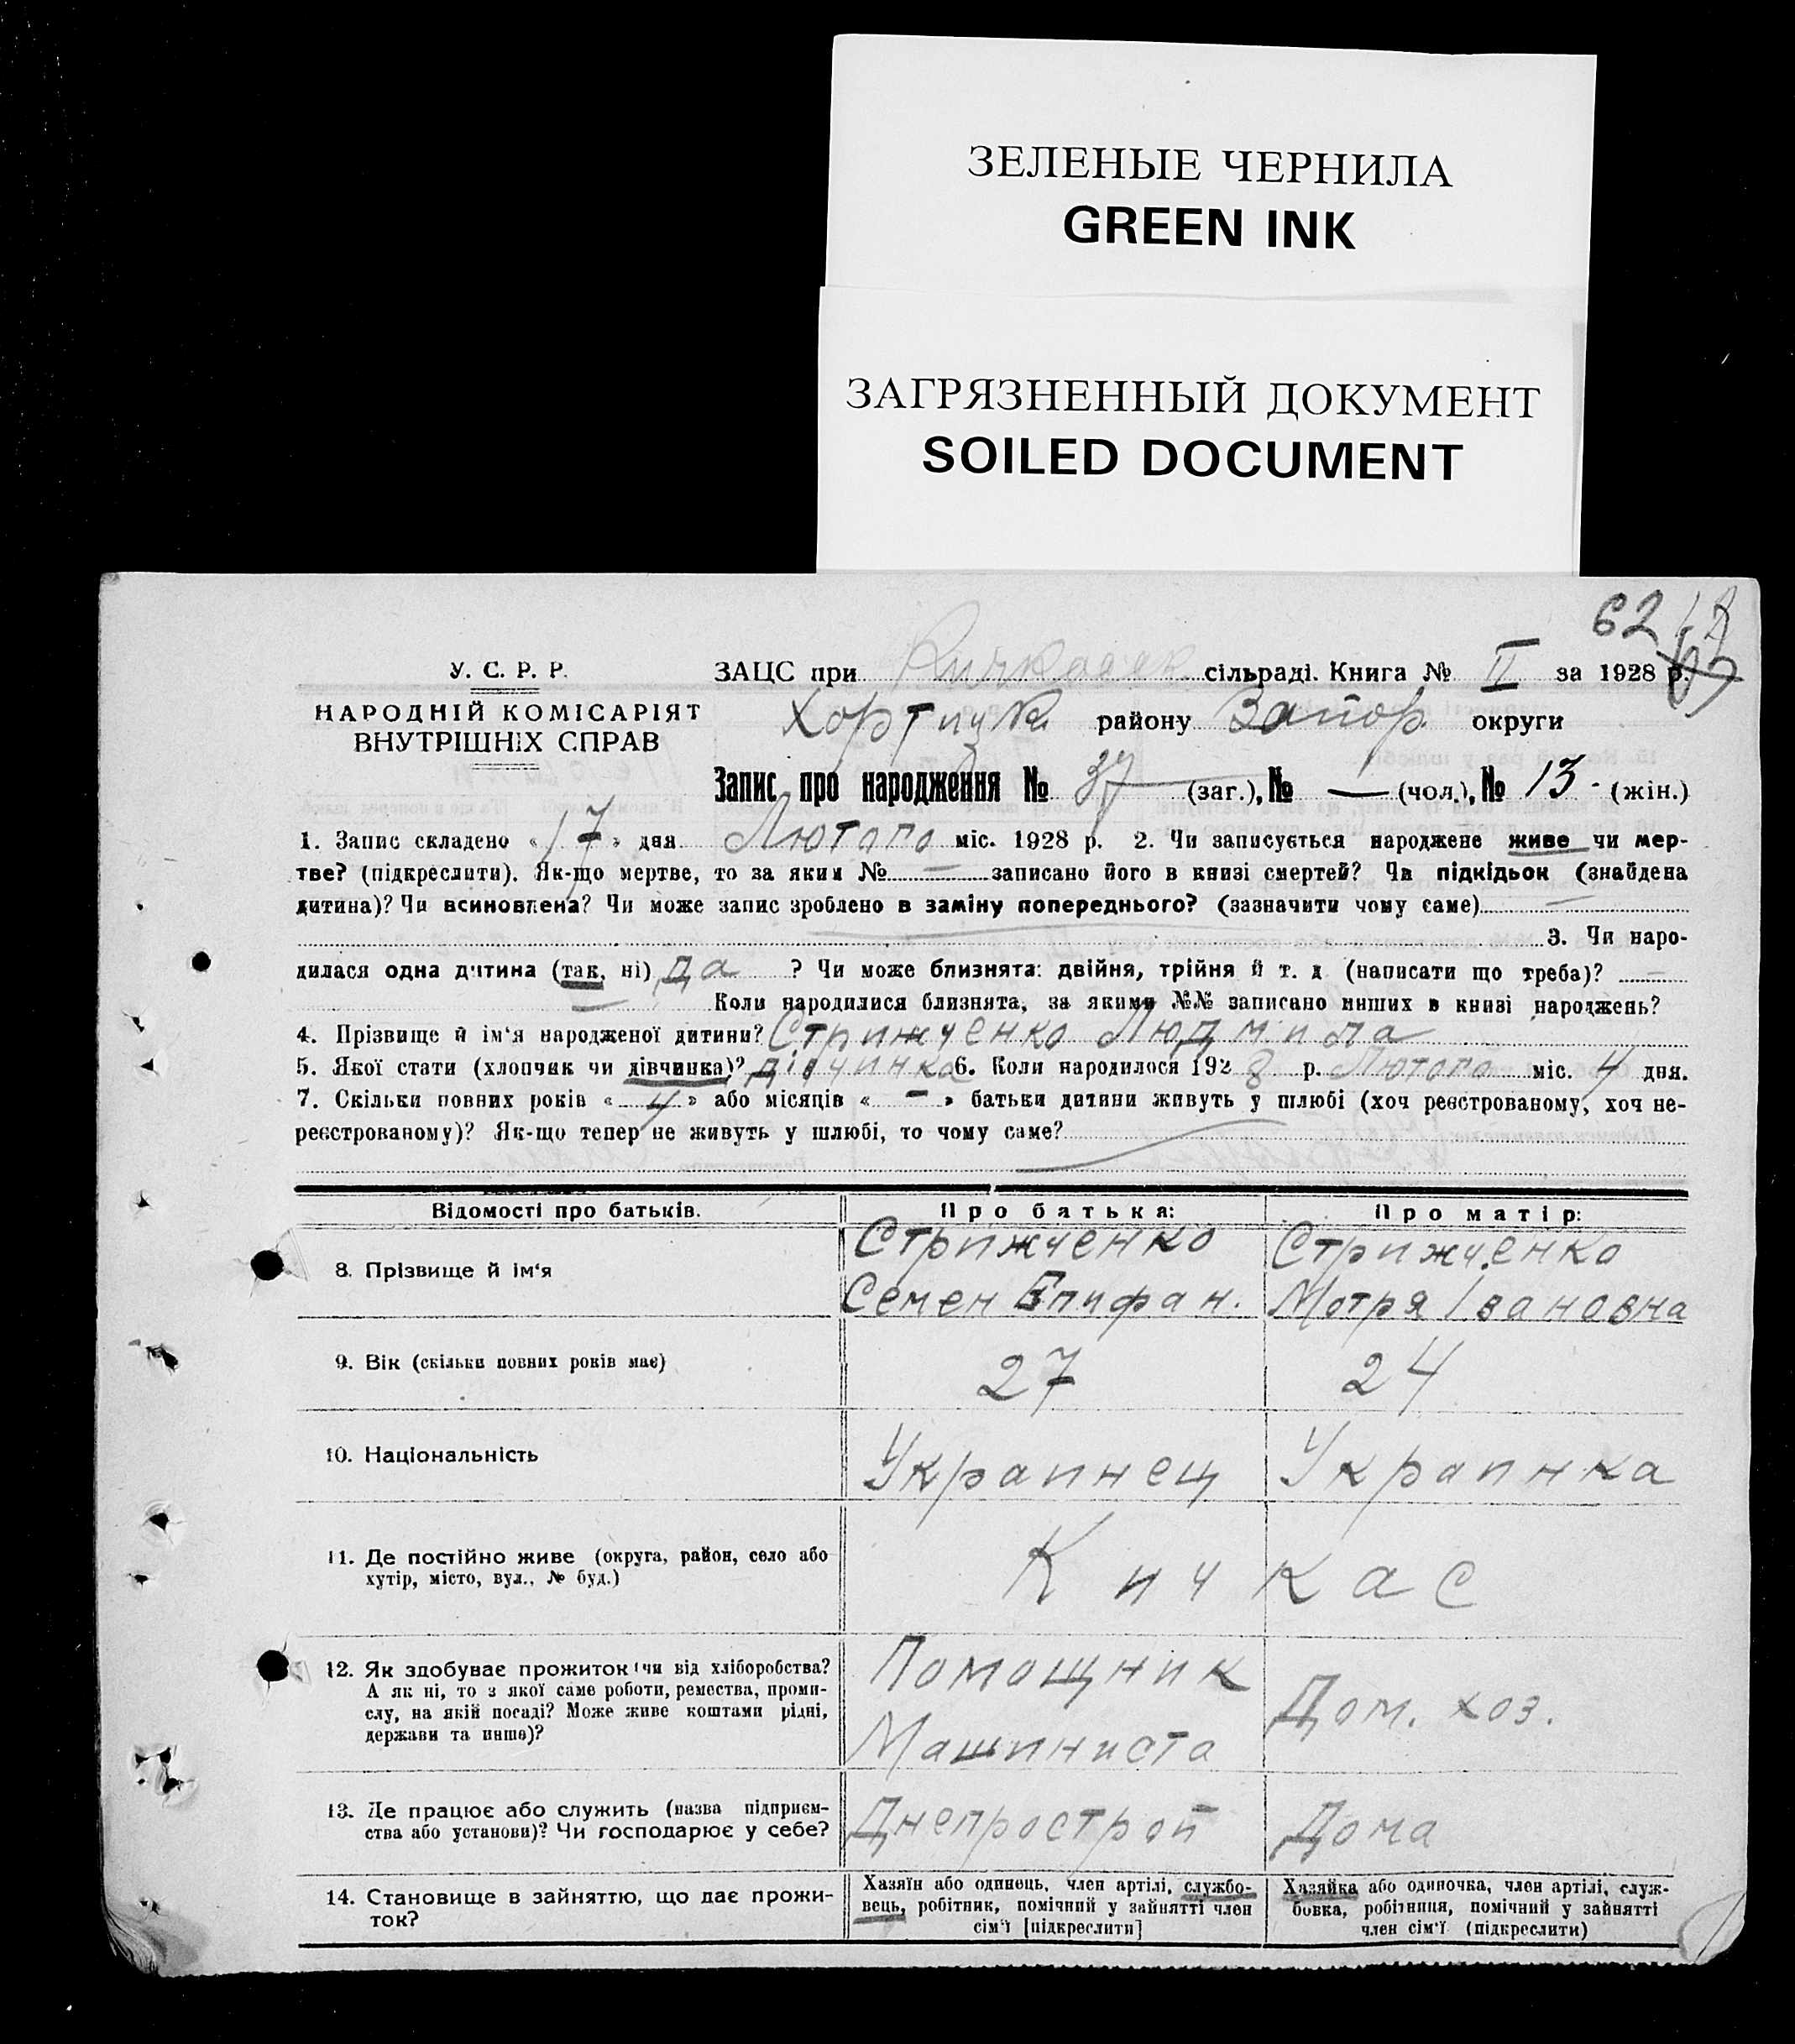 ЗЕЛЕНЫЕ ЧЕРНИЛА
GREEN INK
ЗАГРЯЗНЕННЫЙ ДОКУМЕНТ
SOILED DOCUMENT
62
У. С. Р. Р.
НАРОДНІЙ КОМІСАРІЯТ
ВНУТРІШНІХ СПРАВ
ЗАЦС при Кичкасск сільраді. Книга № II за 1928 р.
Хортицьк. району Запор. округи
Запис про народження № 37 (заг.), № — (чол.), № 13 - (жін.)
1. Запис складено « 17 » дня Лютого міс. 1928 р. 2. Чи записується народжене живе чи мер-
тве? (підкреслити). Як-що мертве, то за яким № — записано його в книзі смертей? Чи підкідьок (знайдена
дитина)? Чи всиновлена? Чи може запис зроблено в заміну попереднього? (зазначити чому саме) —
3. Чи наро-
дилася одна дитина (так, ні) да ? Чи може близнята: двійня, трійня й т. д (написати що треба)? —
— Коли народилися близнята, за якими №№ записано инших в книзі народжень?
4. Прізвище й ім‘я народженої дитини? Стрижченко Людмила
5. Якої стати (хлопчик чи дівчинка)? дівчинка 6. Коли народилося 1928 р. Лютого міс. 4 дня.
7. Скільки повних років « 4 » або місяців « - » батьки дитини живуть у шлюбі (хоч реєстрованому, хоч не-
реєстрованому)? Як-що тепер не живуть у шлюбі, то чому саме?
Відомості про батьків.
Про батька:
Про матір:
8. Прізвище й ім‘я
Стрижченко
Семен Епифан.
Стрижченко
Мотря Івановна
9. Вік (скільки повних років має)
27
24
10. Національність
Украинец
Украинка
11. Де постійно живе (округа, район, село або
хутір, місто, вул., № буд.)
Кичкас
12. Як здобуває прожиток: чи від хліборобства?
А як ні, то з якої саме роботи, ремества, проми-
слу, на якій посаді? Може живе коштами рідні,
держави та инше)?
Помощник
Машиниста
Дом. хоз.
13. Де працює або служить (назва підприєм-
ства або установи)? Чи господарює у себе?
Днепрострой
Дома
14. Становище в зайняттю, що дає прожи-
ток?
Хазяїн або одинець, член артілі, службо-
вець, робітник, помічний у зайнятті член
сім‘ї [підкреслити]
Хазяйка або одиночка, член артілі, служ-
бовка, робітниця, помічний у зайнятті
член сім‘ї (підкреслити)